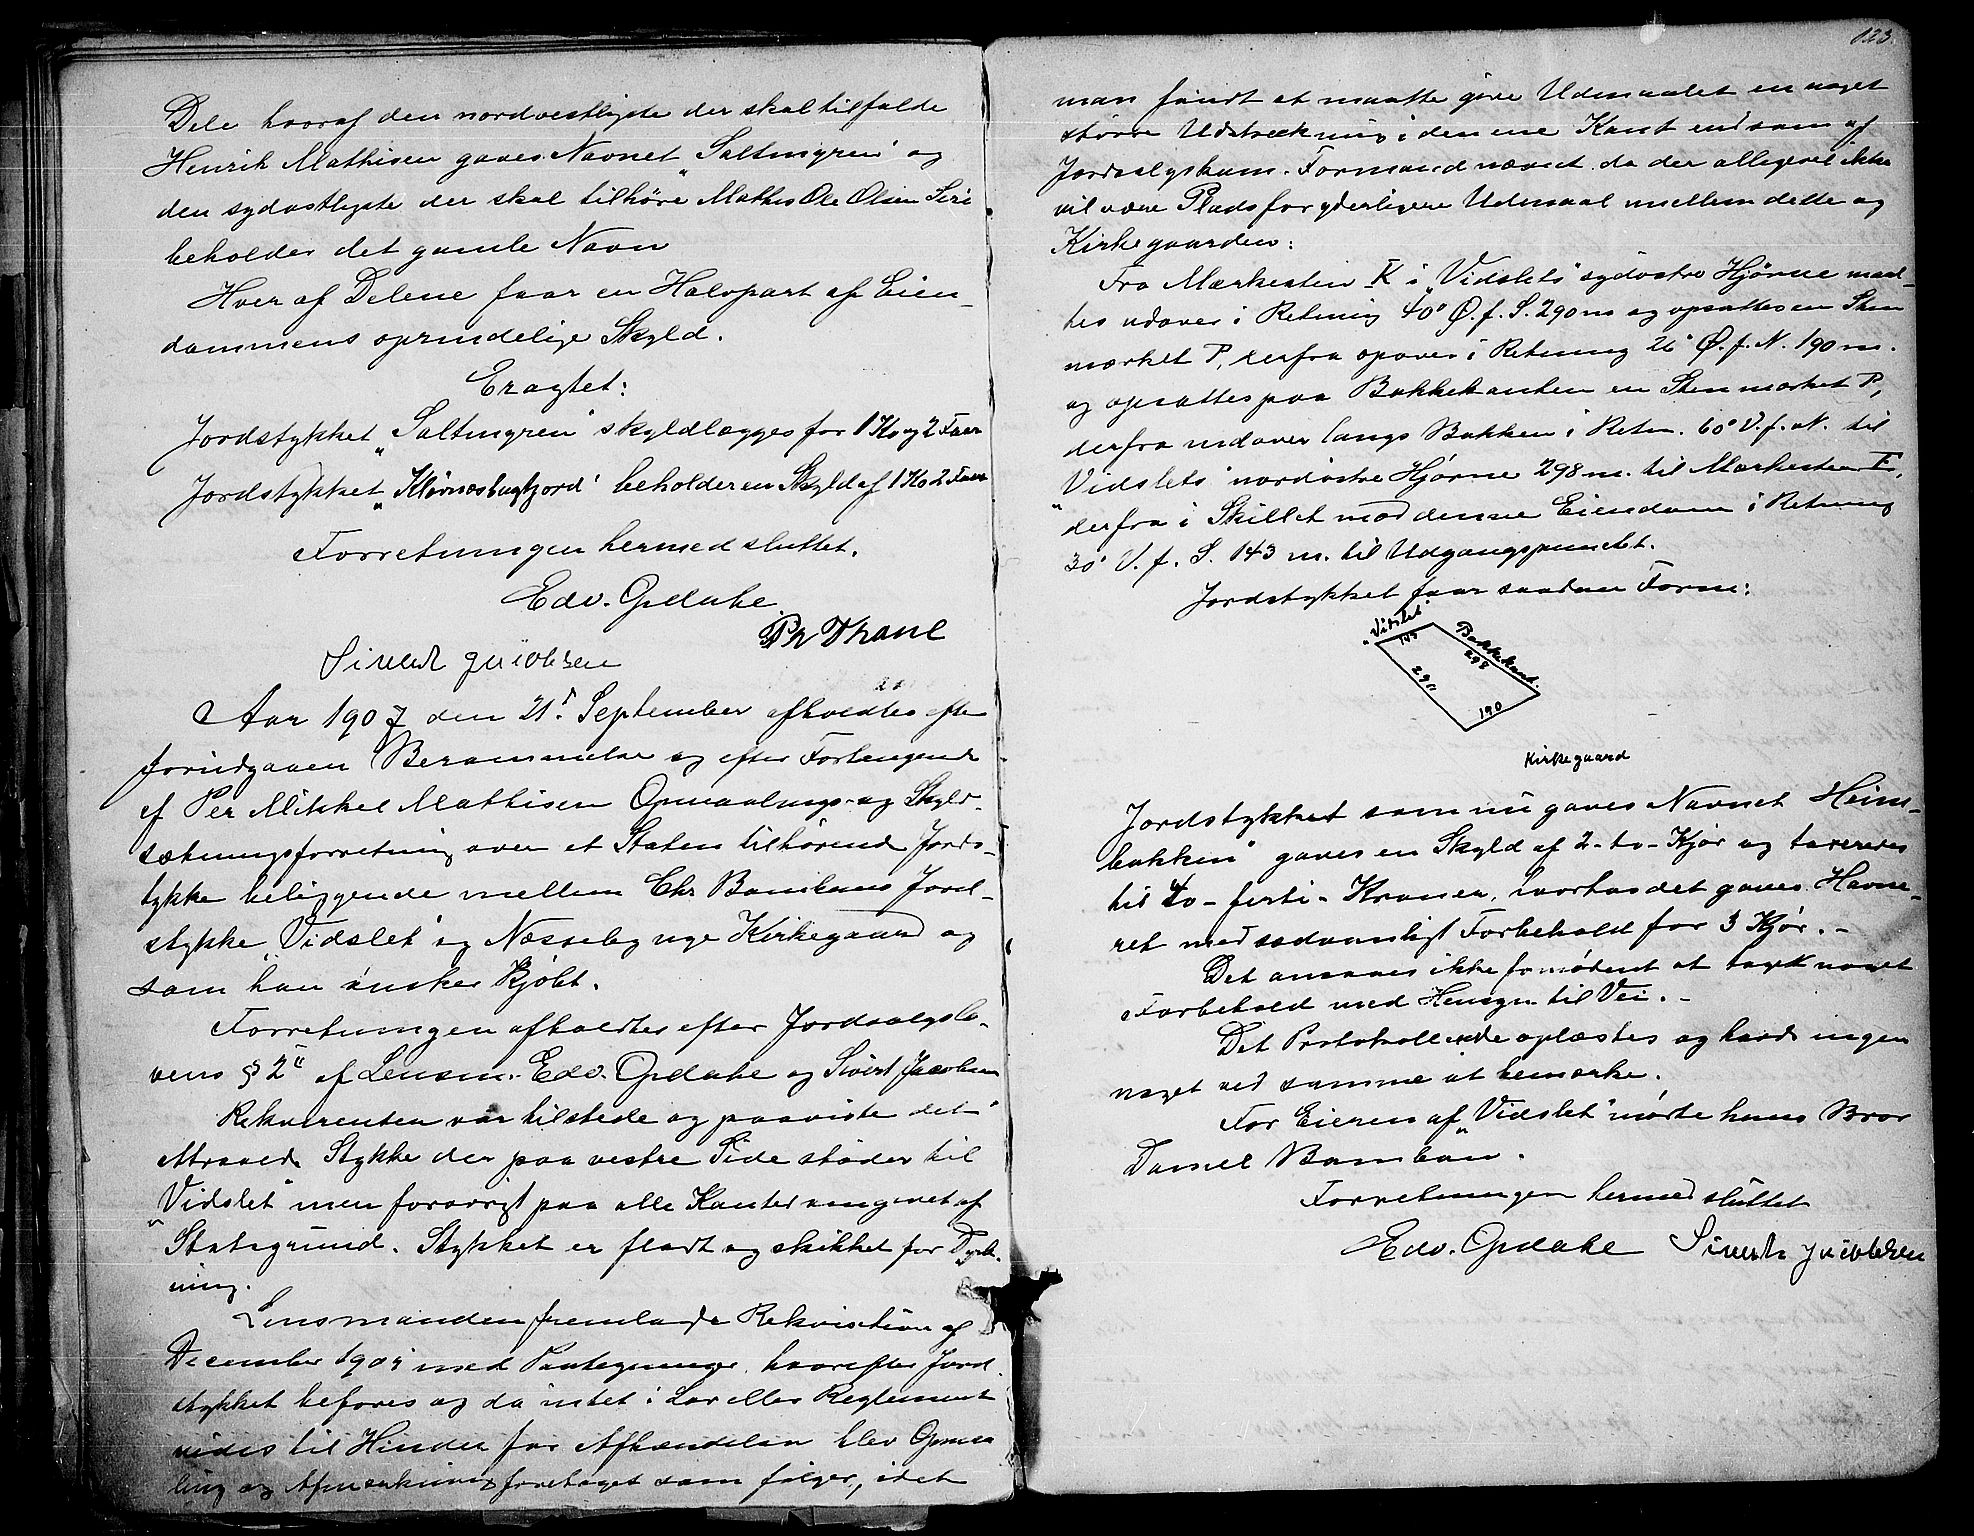 Dele hvoraf den nordvestligste der skal tilfalde
Henrik Mathisen gaves Navnet „Saltmyren" og
den sydostligste der skal tilhøre Mathis Ole Olsen Siri
beholder det gamle Navn
Hver af Delene faar en Halvpart af Eien-
dommens oprindelige Skyld.
Eragtet:
Jordstykket „Saltmyren" skyldlægges for 1 Ko og 2 Faar
Jordstykket „Kløvnesbugfjord" beholder en Skyld af 1 Ko 2 Faar
Forretningen hermed sluttet.
Edv. Opdahe
Ph Thane
Sivert Jacobsen
Aar 1907 den 21de September afholdtes efter
forudgaaen Berammelse og efter Forlangende
af Per Mikkel Mathisen Opmaalings- og Skyld-
sætningsforretning over et Staten tilhørende Jord-
stykke beliggende mellem Chr. Banbans Jord-
stykke „Vidslet" og Næsseby nye Kirkegaard og
som han ønsker Kjøbt.
Forretningen afholdtes efter Jordsalgslo-
vens § 2 af Lensm. Edv. Opdahe og Sivert Jacobsen
Rekvirenten var tilstede og paaviste det
attraaede Stykke der paa vestre Side støder til
„Vidslet" men forøvrigt paa alle Kanter omgivet af
Statsgrund. Stykket er fladt og skikket for Dyrk-
ning.
Lensmanden fremlagde Rekvisition af
December 190 med Paategninger, hvorefter Jord-
stykket befores og da intet i Lov eller Reglement
vides til Hinder for Afhændelsen blev Opmaa
ling og Afmærkning foretaget som følger, idet
123.
man fandt at maatte give Udmaalet en noget
større Udstrækning i den ene Kant end som af
Jordsalgskom. Formand nævnt da der alligevel ikke
vil være Plads for yderligere Udmaal mellem dette og
Kirkegaarden:
Fra Mærkesten K i „Vidslets" sydostre Hjørne maal-
tes udover i Retning 40° Ø. f. S. 290 m og opsattes en Sten
mærket P, derfra opover i Retning 26° Ø. f. N. 190 m.
og opsattes paa Bakkekanten en Sten mærket P,
derfra indover langs Bakken i Retn. 60° V. f. N. til
„Vidslets" nordostre Hjørne 298 m. til Mærkesten E,
derfra i Skillet mod denne Eiendom i Retning
30° V. f. S. 143 m. til Udgangspunktet.
Jordstykket faar saadan Form:
„Vidslet"
143
Bakkekant.
298
290
190
Kirkegaard
Jordstykket som nu gaves Navnet Heim-
bakken" gaves en Skyld af 2 - to - Kjør og taxeredes
til 40 - firti - Kroner, hvorhos det gaves Havne-
ret med sædvanligt Forbehold for 3 Kjør. -
Det ansaaes ikke fornødent at tage noget
Forbehold med Hensyn til Vei. -
Det Protokollerede oplæstes og havde ingen
noget ved samme at bemærke.
For Eieren af „Vidslet" mødte hans Bror
Daniel Banban.
Forretningen hermed sluttet
Edv. Opdahe Sivert Jacobsen